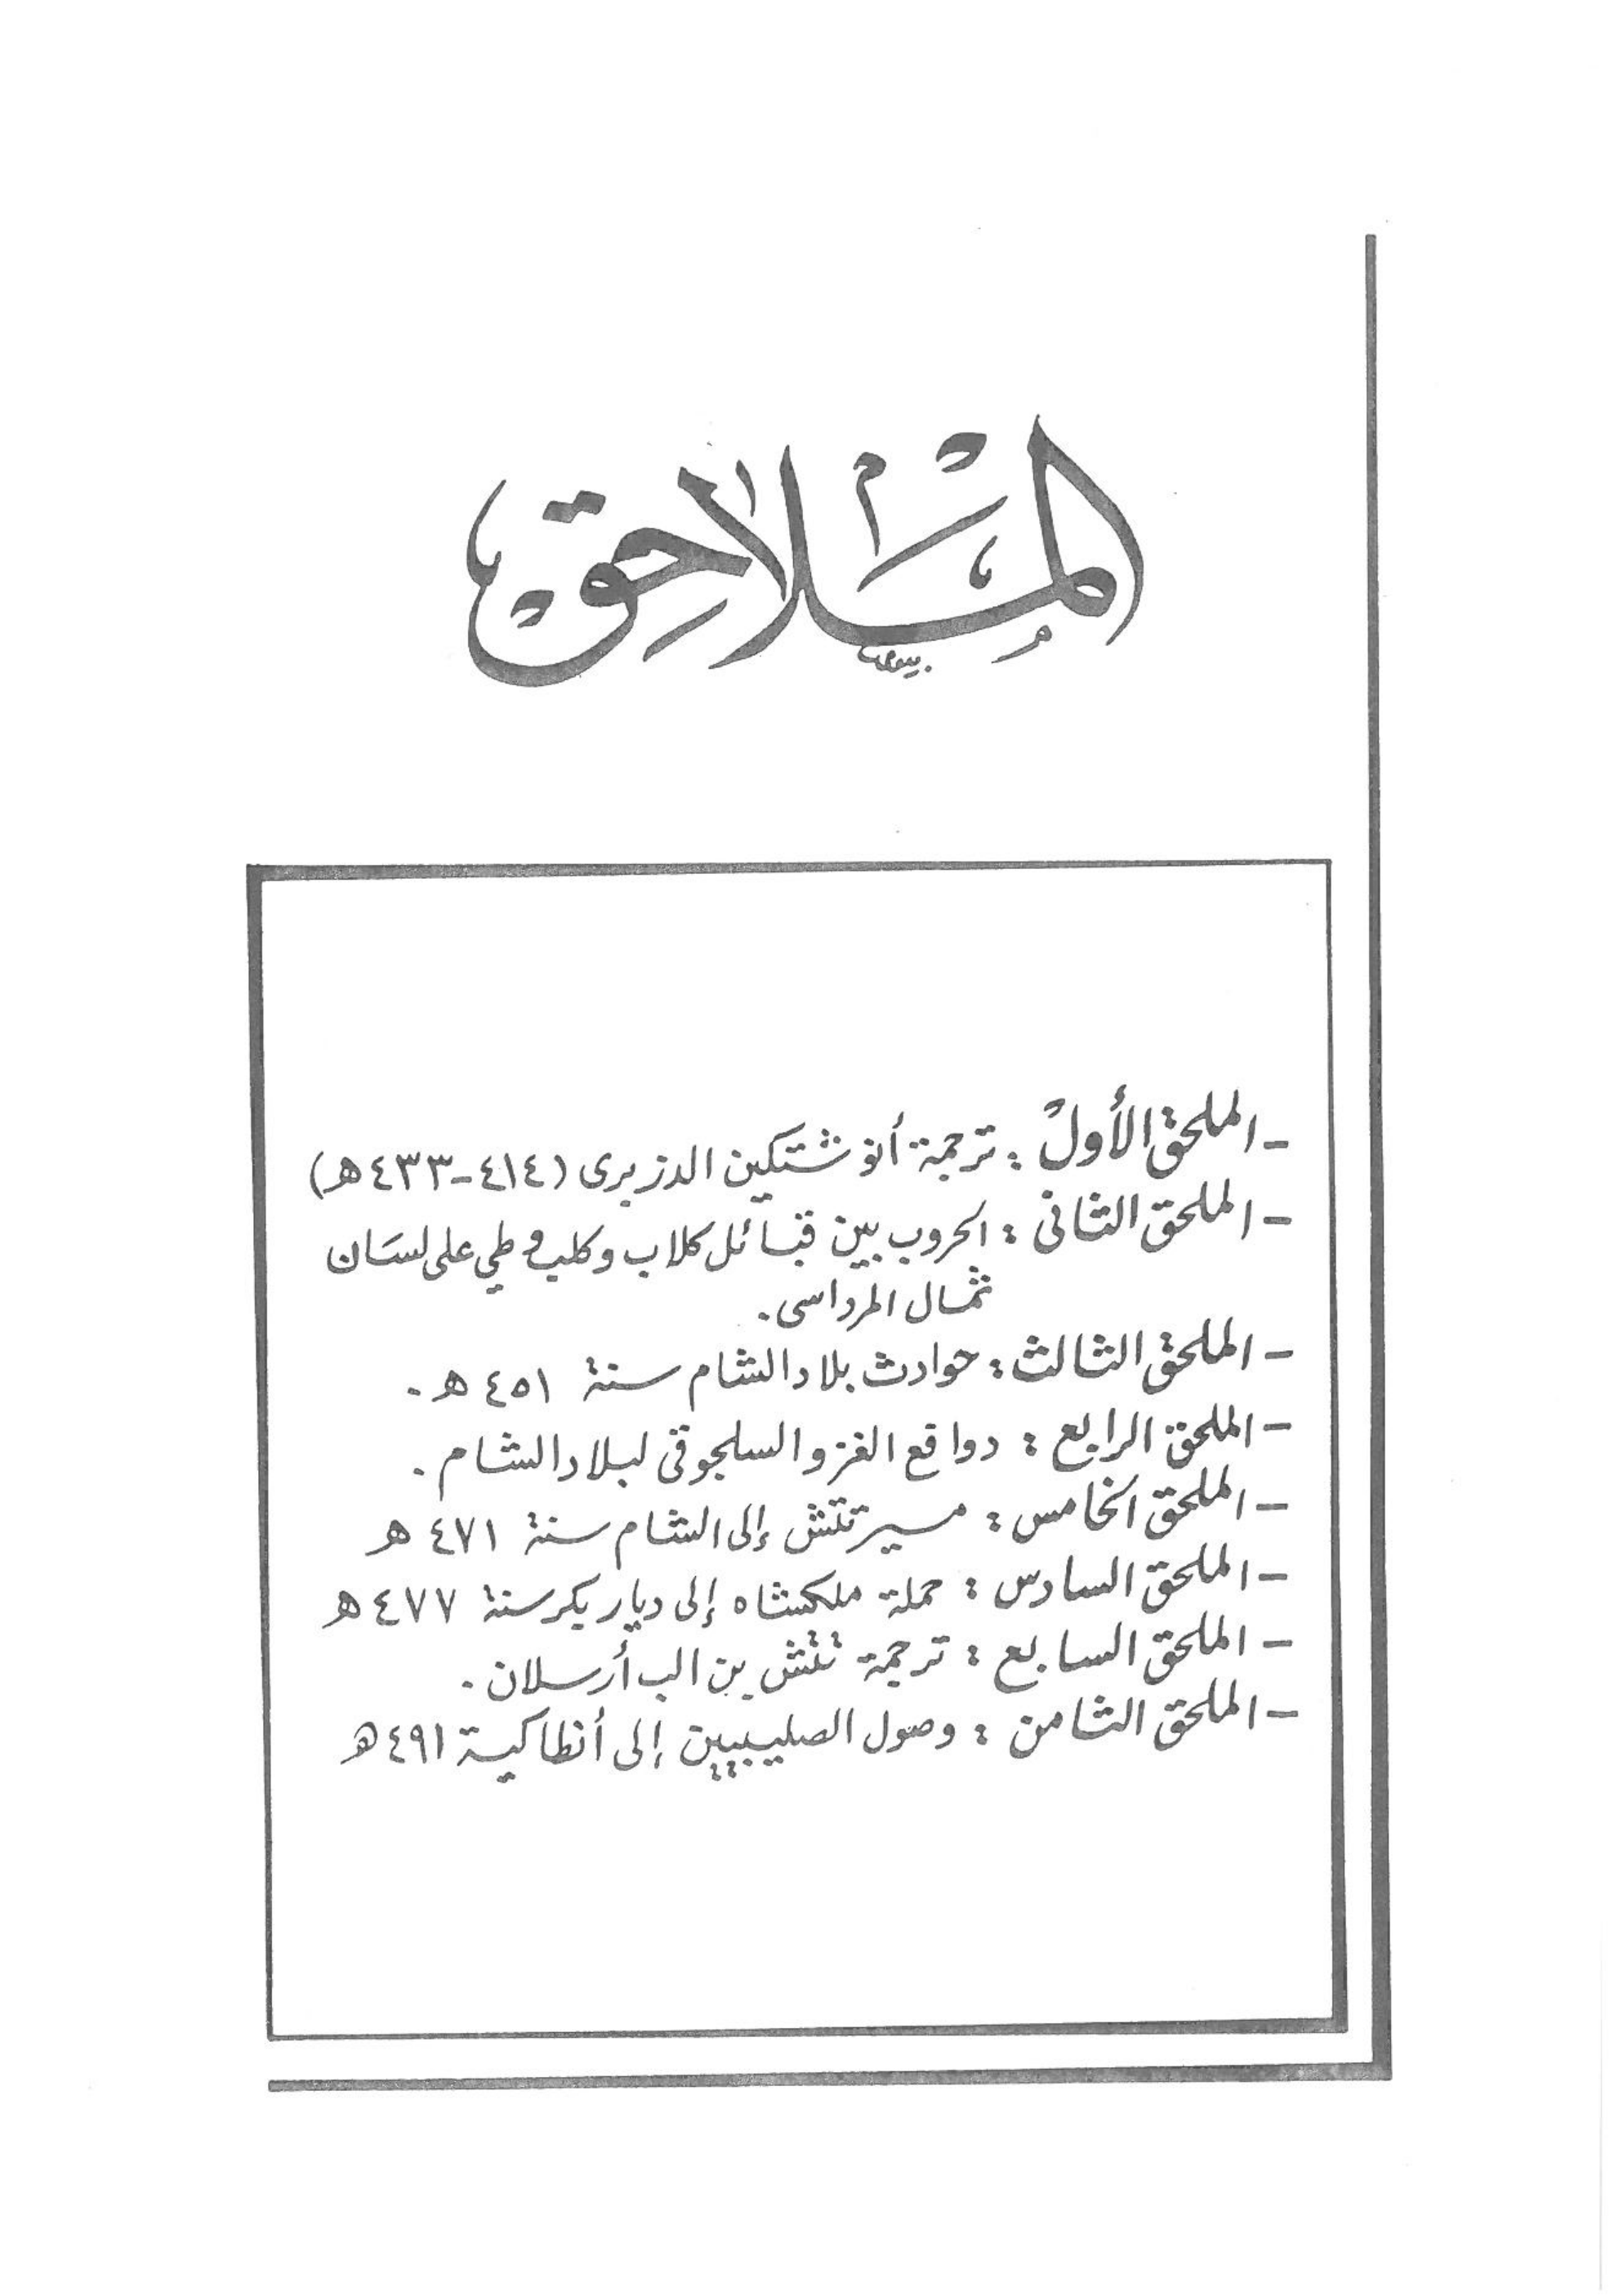 الملاحق
- الملحق الأول : ترجمة أنوشتكين الدزبرى (٤١٤-٤٣٣ه)
- الملحق الثانى : الحروب بين قبائل كلاب وكلب وطي على لسان
ثمال المرداسى .
- الملحق الثالث : حوادث بلاد الشام سنة ٤٥١ ه .
- الملحق الرابع : دوافع الغزو السلجوقى لبلاد الشام .
- الملحق الخامس : مسير تتش إلى الشام سنة ٤٧١ ه
- الملحق السادس : حملة ملكشاه إلى ديار بكر سنة ٤٧٧ ه
- الملحق السابع : ترجمة تتش بن الب أرسلان .
- الملحق الثامن : وصول الصليبيين إلى أنطاكية ٤٩١ ه